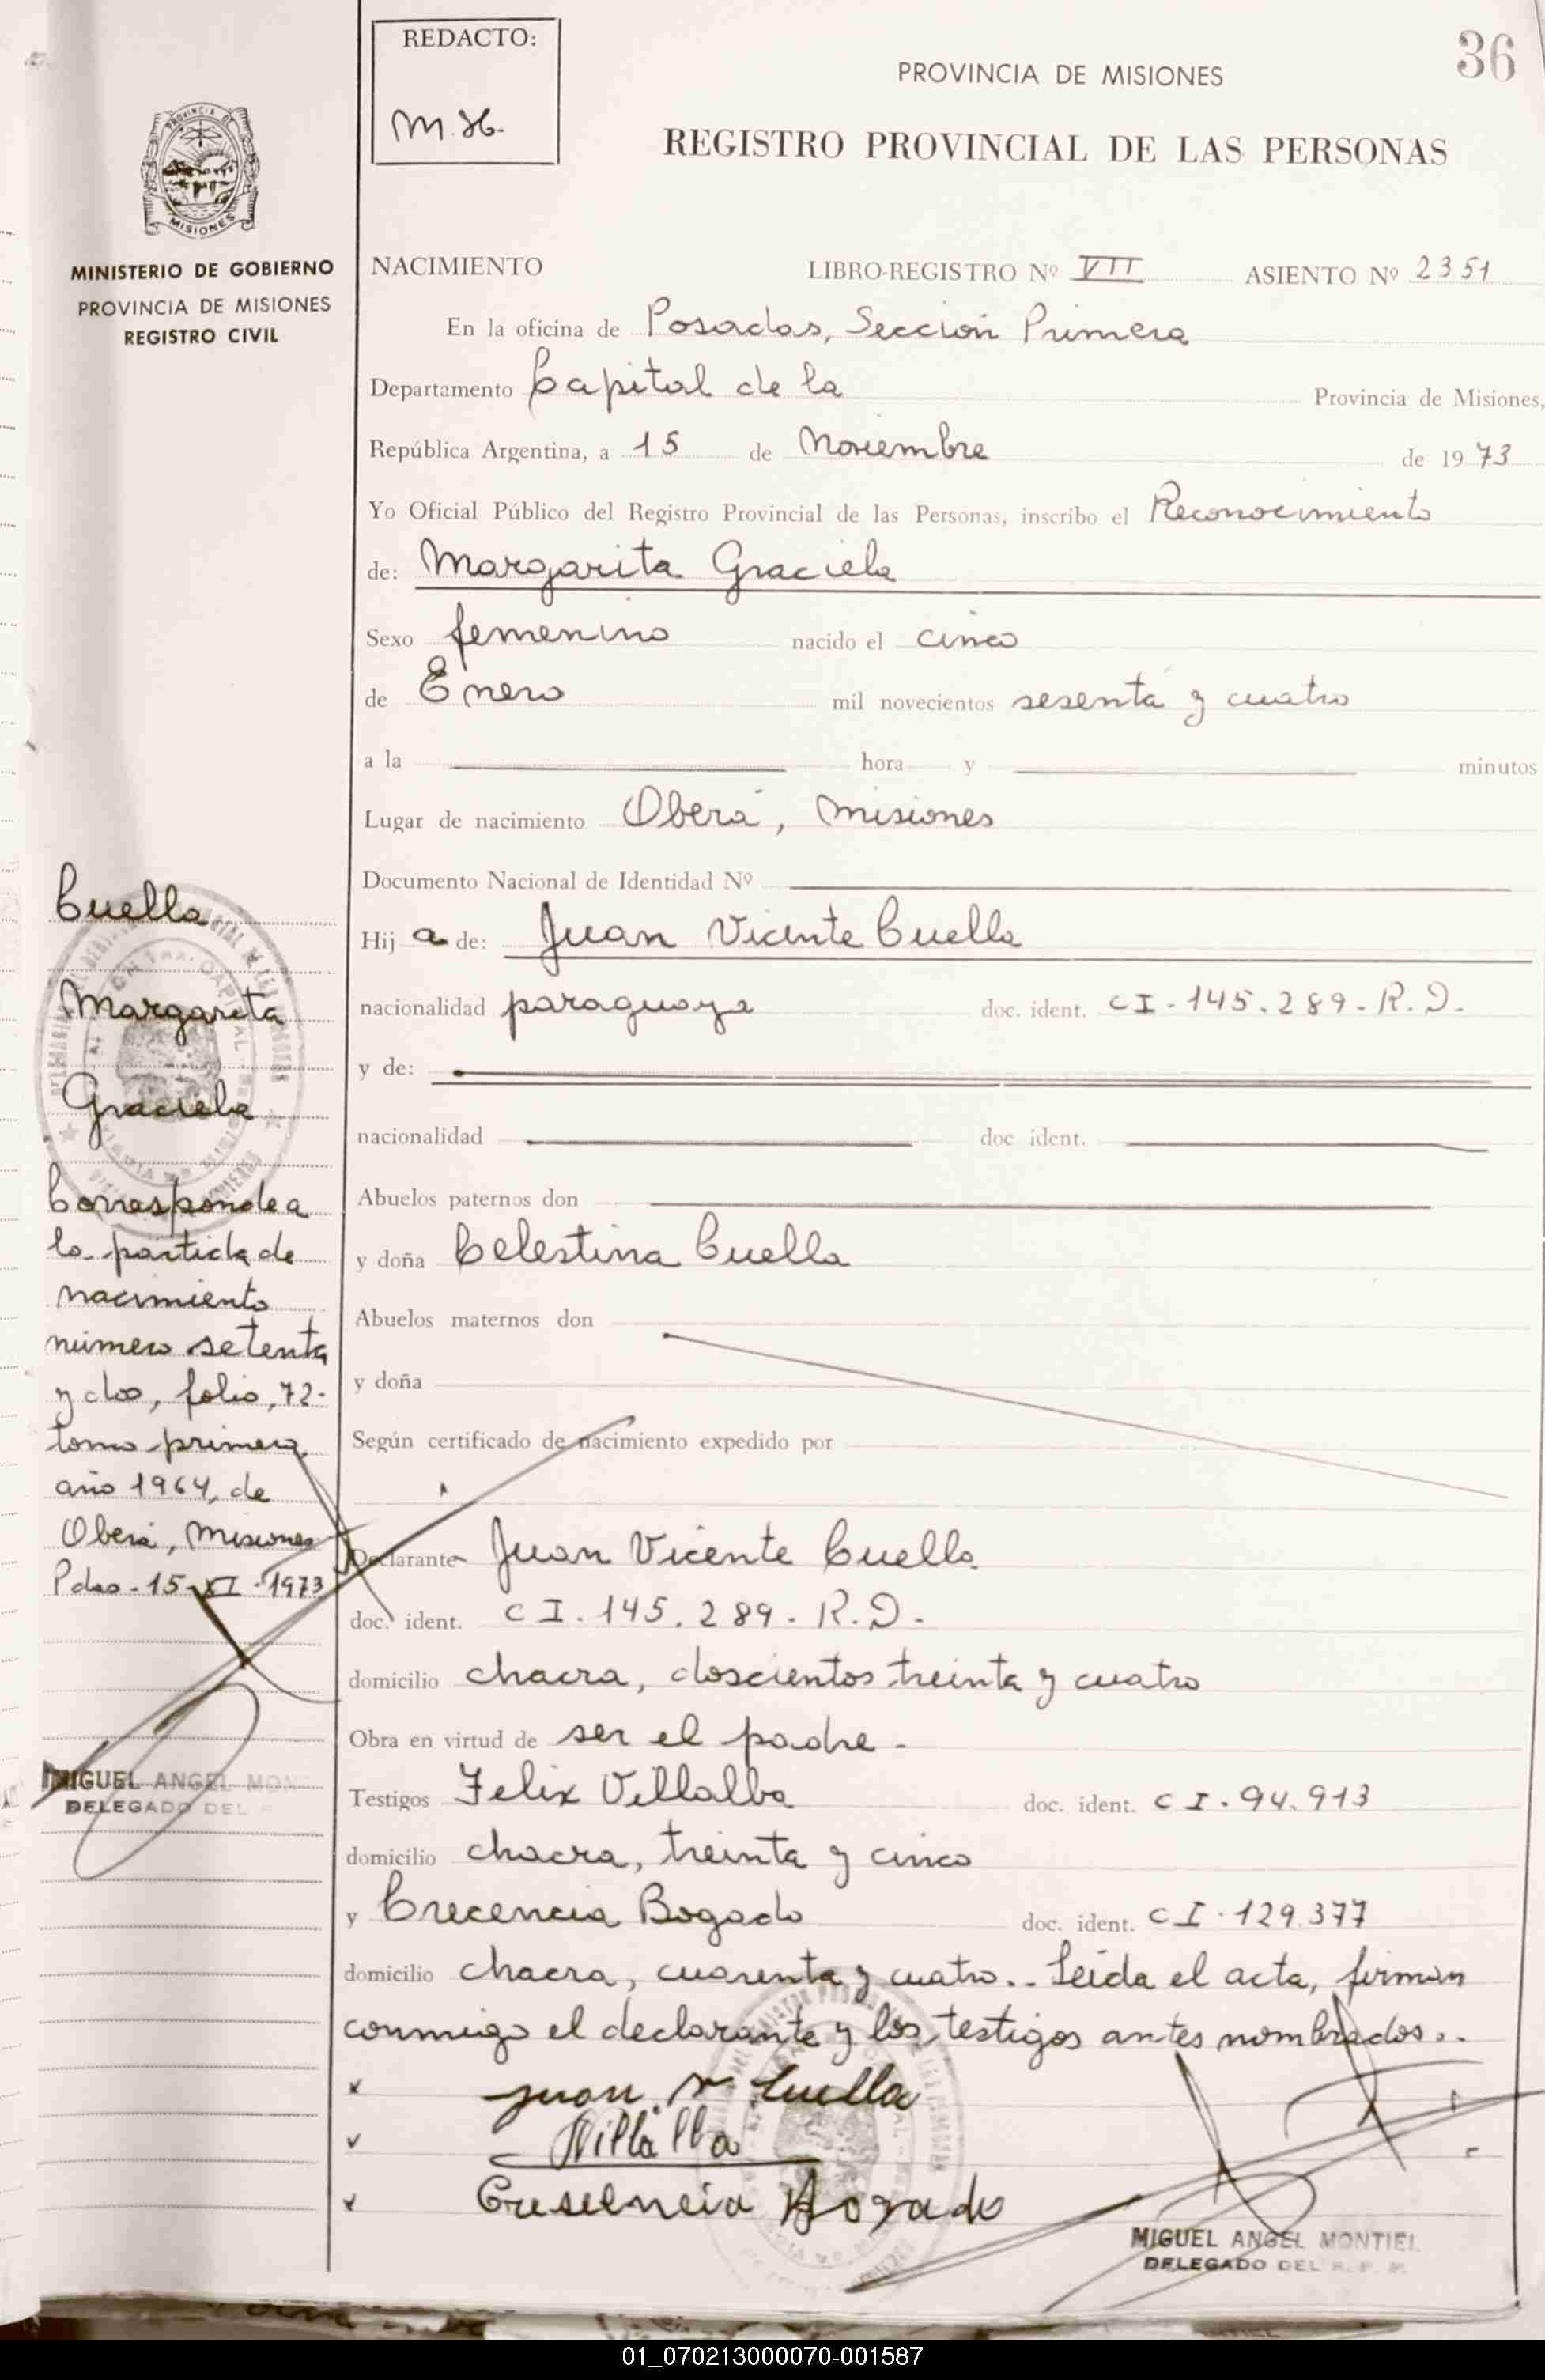 REDACTO:
M.86.
36
PROVINCIA DE MISIONES
REGISTRO PROVINCIAL DE LAS PERSONAS
PROVINCIA DE
MISIONES
MINISTERIO DE GOBIERNO
PROVINCIA DE MISIONES
REGISTRO CIVIL
NACIMIENTO LIBRO-REGISTRO Nº VII ASIENTO Nº 2351
En la oficina de Posadas, Sección Primera
Departamento Capital de la Provincia de Misiones,
República Argentina, a 15 de Noviembre de 1973
Yo Oficial Público del Registro Provincial de las Personas, inscribo el Reconocimiento
de: Margarita Graciela
Sexo femenino nacido el cinco
de Enero mil novecientos sesenta y cuatro
a la hora y minutos
Lugar de nacimiento Oberá, Misiones
Documento Nacional de Identidad Nº
Hij a de: Juan Vicente Cuella
nacionalidad paraguaya doc. ident. CI-145.289-R.D.
y de:
nacionalidad doc ident.
Abuelos paternos don
y doña Celestina Cuella
Abuelos maternos don
y doña
Según certificado de nacimiento expedido por
Declarante Juan Vicente Cuella
doc. ident. CI.145.289.R.D.
domicilio chacra, doscientos treinta y cuatro
Obra en virtud de ser el padre.
Testigos Felix Villalba doc. ident. CI.94.913
domicilio chacra, treinta y cinco
y Crecencia Bogado doc. ident. CI.129.377
domicilio chacra, cuarenta y cuatro.. Leída el acta, firman
conmigo el declarante y los testigos antes nombrados..
Juan V Cuella
Villalba
Creselncia Bogado
MIGUEL ANGEL MONTIEL
DELEGADO DEL R. P. P.
Cuella
Margarita
Graciela
Corresponde a
la partida de
nacimiento
número setenta
y dos, folio, 72-
tomo primero
año 1964, de
Oberá, Misiones
Pdas-15-XI-1973
MIGUEL ANGEL MON
DELEGADO DEL
01_070213000070-001587